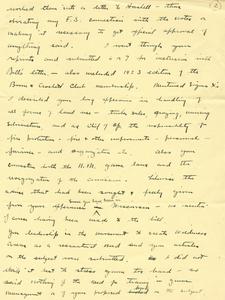 2
worked them into a letter to Haskell - thus
obviating any F.S. connection with the notes or
making it necessary to get special approval of
anything said. I went through your
reprints and submitted for inclusion with
Bill's letter - also included 1923 edition of the
Boone & Crockett Club membership. Mentioned Sigma Xi
described your long experience in handling of
all forms of land use - timber sales, grazing, mining
Administration and as Chief of the responsibility for
fire protection - fire & other improvements - personnel -
and also your
connection with the N.M. game laws and the
reorganization of the commission. Likewise the
advice that had been sought & freely given
from your experiences Wisconsin - no mention
of course having been made to the bill
Your leadership in the movement to create Wilderness
Areas as a recreational need and your articles
on the subject were submitted. I did not
think it best to stress given too hard - so
said nothing of the need for training in game
Management or of your proposed book on the subject